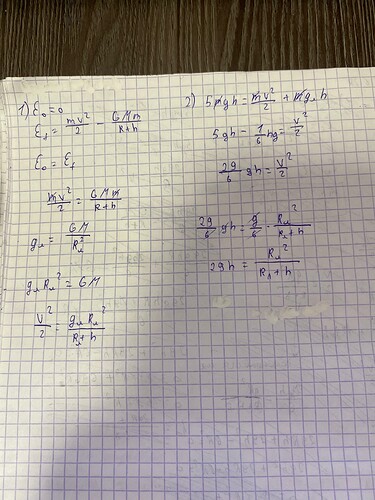 1) Ɛ₀ = 0
Ɛ₁ = mv²/2 − GMm/(R+h)
Ɛ₀ = Ɛ₁
mv²/2 = GMm/(R+h)
gл = GM/Rл²
gлRл² = GM
v²/2 = gлRл²/(Rл+h)
2) 5mgh = mv²/2 + mgлh
5gh − 1/6 hg = v²/2
29/6 gh = v²/2
29/6 gh = g/6 · Rл²/(Rл+h)
29h = Rл²/(Rл+h)